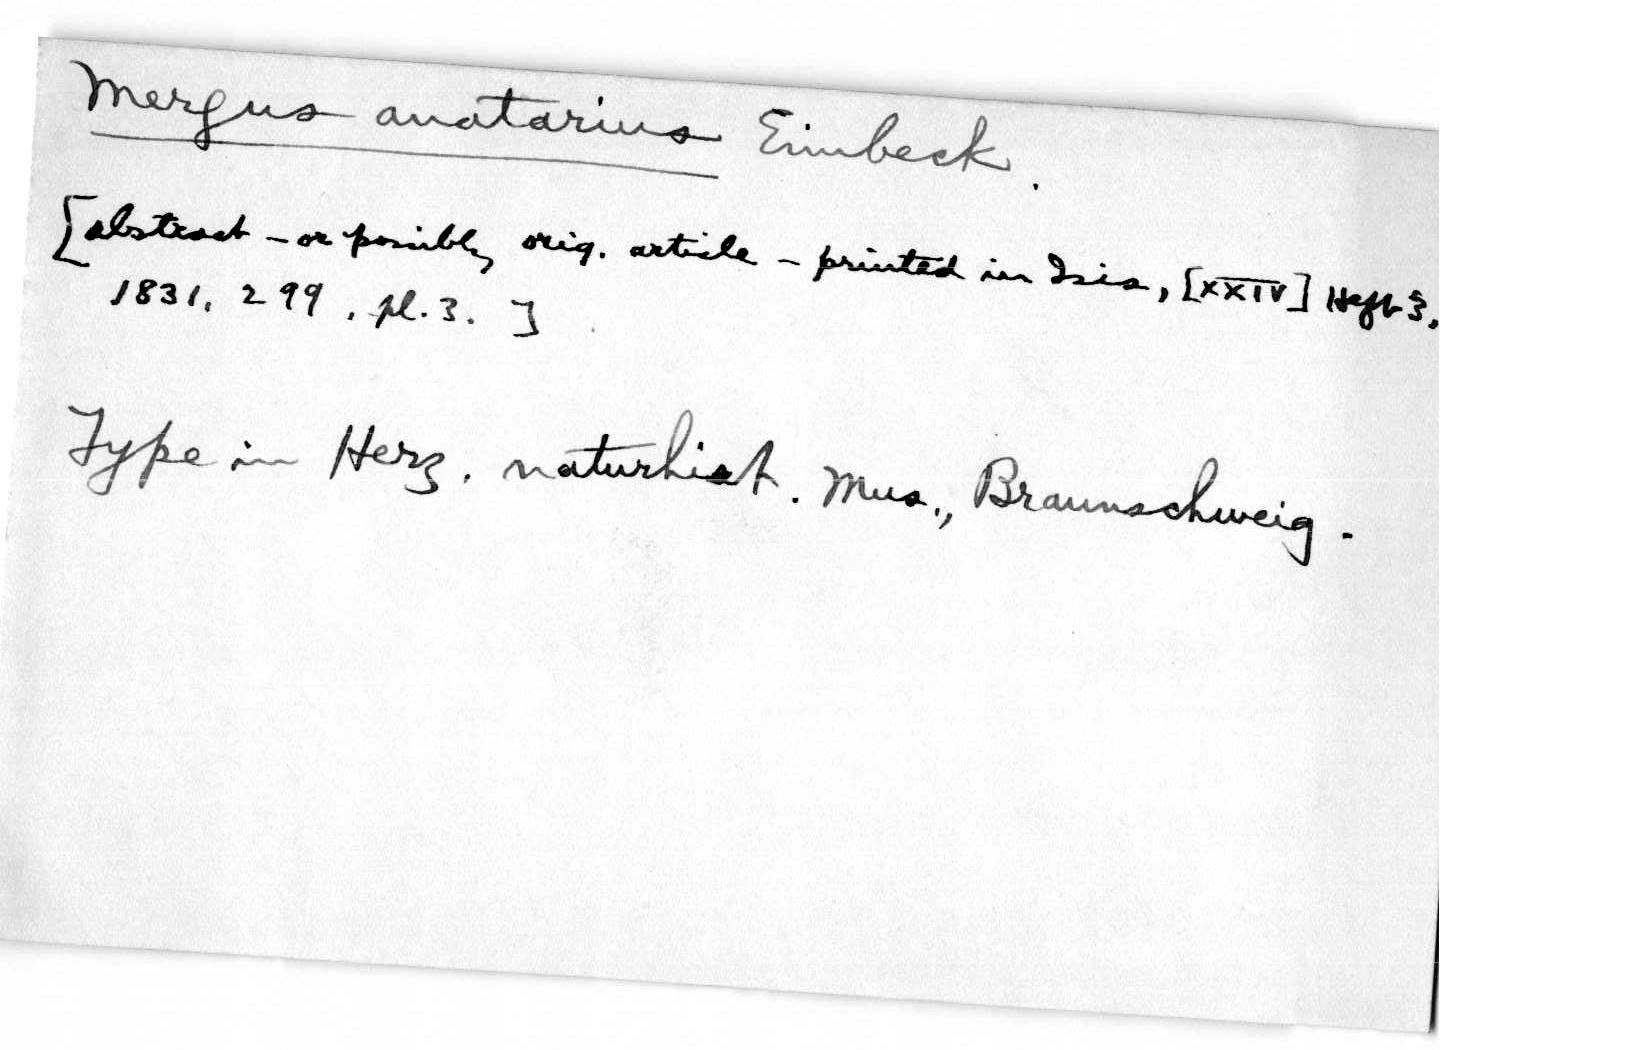 Mergus anatarius Eimbeck.
[abstract – or possibly orig. article – printed in Isis, [XXIV] Heft 3,
1831, 299, pl. 3.]
Type in Herz. naturhist. Mus., Braunschweig.